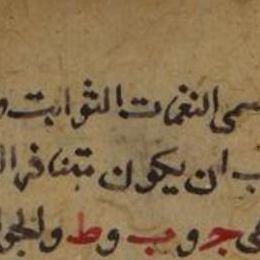 سمى النغمات الثوابت و
ب ان يكون متنافر ال
ى ج و ب و ط والجو